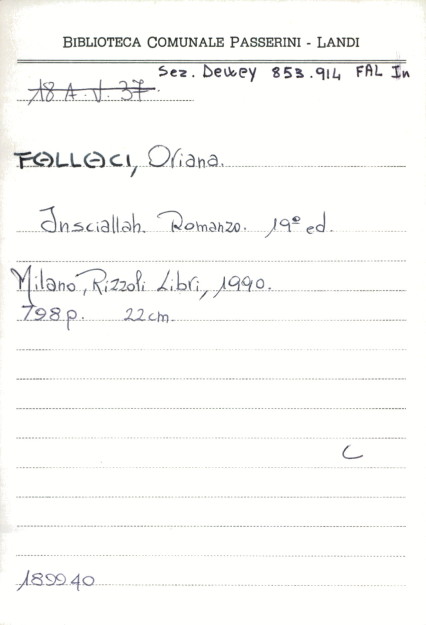 BIBLIOTECA COMUNALE PASSERINI - LANDI
Sez. Dewey 853.914 FAL In
18 A. V. 37
FALLACI, Oriana.
Insciallah. Romanzo. 19ª ed.
Milano, Rizzoli Libri, 1990.
798 p. 22 cm.
C
189940